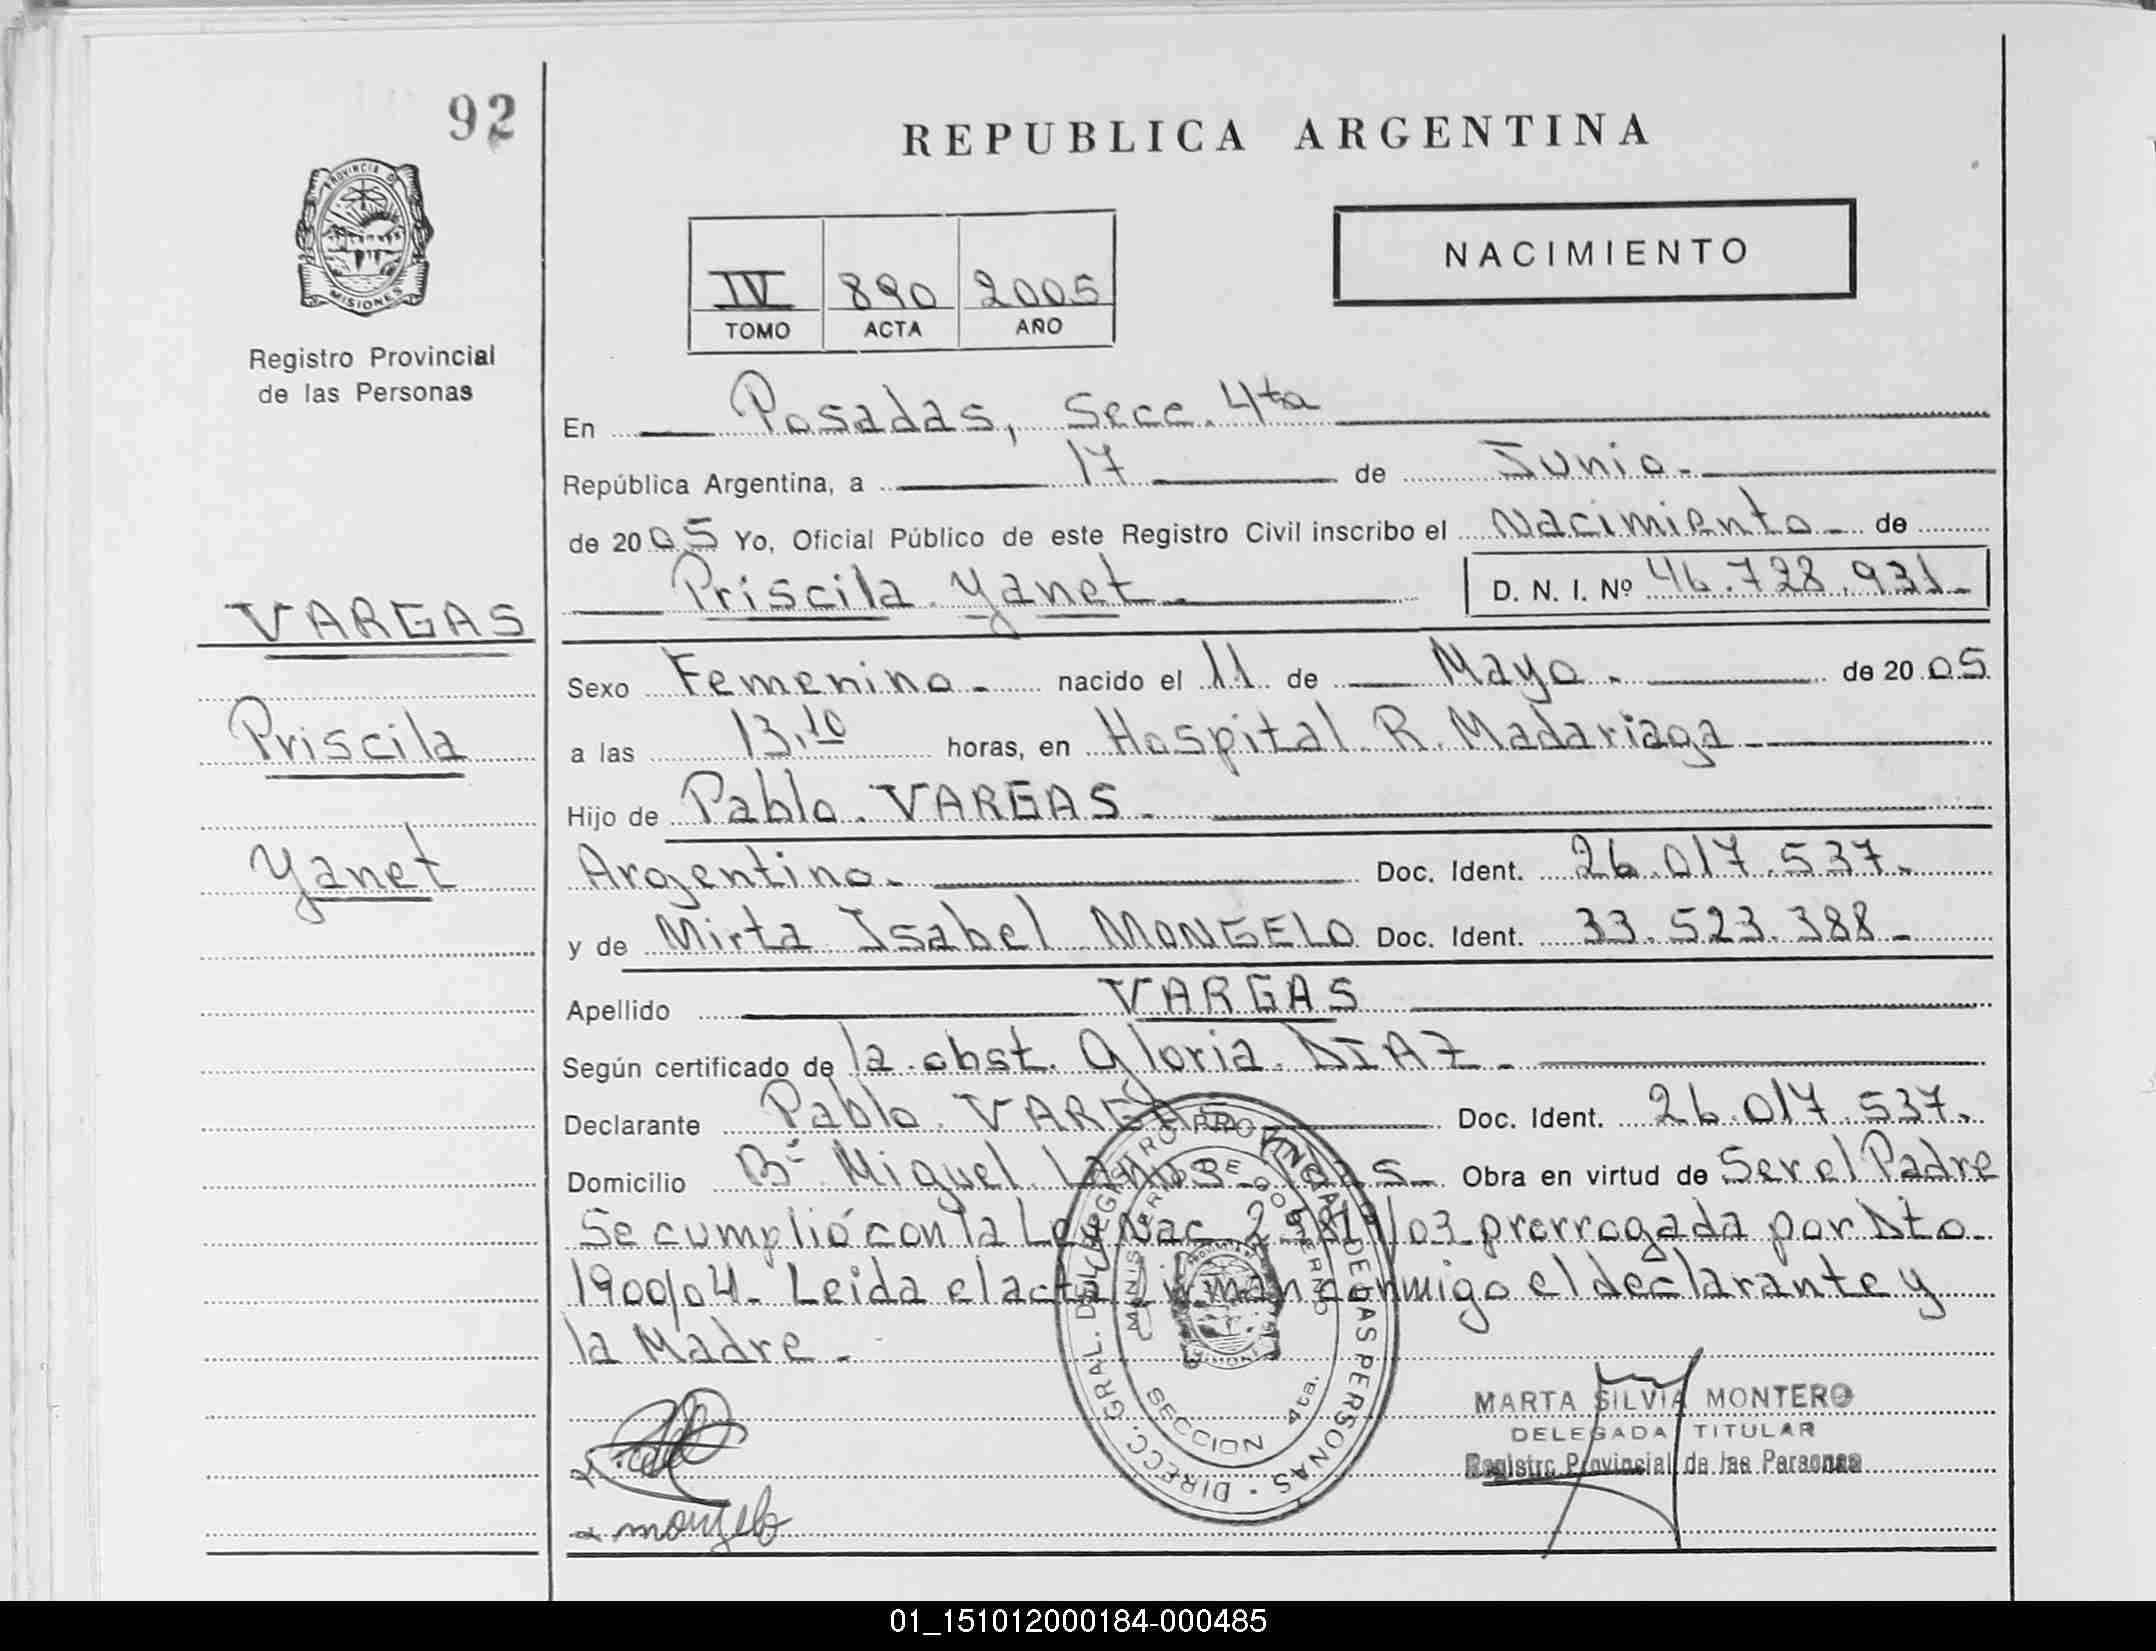 92
PROVINCIA DE
MISIONES
Registro Provincial
de las Personas
VARGAS
Priscila
Yanet
REPUBLICA ARGENTINA
NACIMIENTO
IV 890 2005
TOMO ACTA AÑO
En Posadas, Secc. 4ta
República Argentina, a 17 de Junio.
de 2005 Yo, Oficial Público de este Registro Civil inscribo el Nacimiento de
Priscila Yanet. D. N. I. Nº 46.728.931.
Sexo Femenino. nacido el 11 de Mayo. de 2005
a las 13,10 horas, en Hospital R. Madariaga
Hijo de Pablo VARGAS.
Argentino. Doc. Ident. 26.017.537.
y de Mirta Isabel MONGELO Doc. Ident. 33.523.388
Apellido VARGAS
Según certificado de la obst. Gloria DIAZ
Declarante Pablo VARGAS Doc. Ident. 26.017.537.
Domicilio Bº Miguel Obra en virtud de Ser el Padre
Se cumplió con la Ley Nac. /03 prorrogada por Dto.
1900/04. Leida el acta firman conmigo el declarante y
la Madre.
DIRECC. GRAL. DEL REGISTRO PROVINCIAL DE LAS PERSONAS
MINISTERIO DE GOBIERNO
SECCION 4ta.
mongelo
MARTA SILVIA MONTERO
DELEGADA TITULAR
Registro Provincial de las Personas
01_151012000184-000485